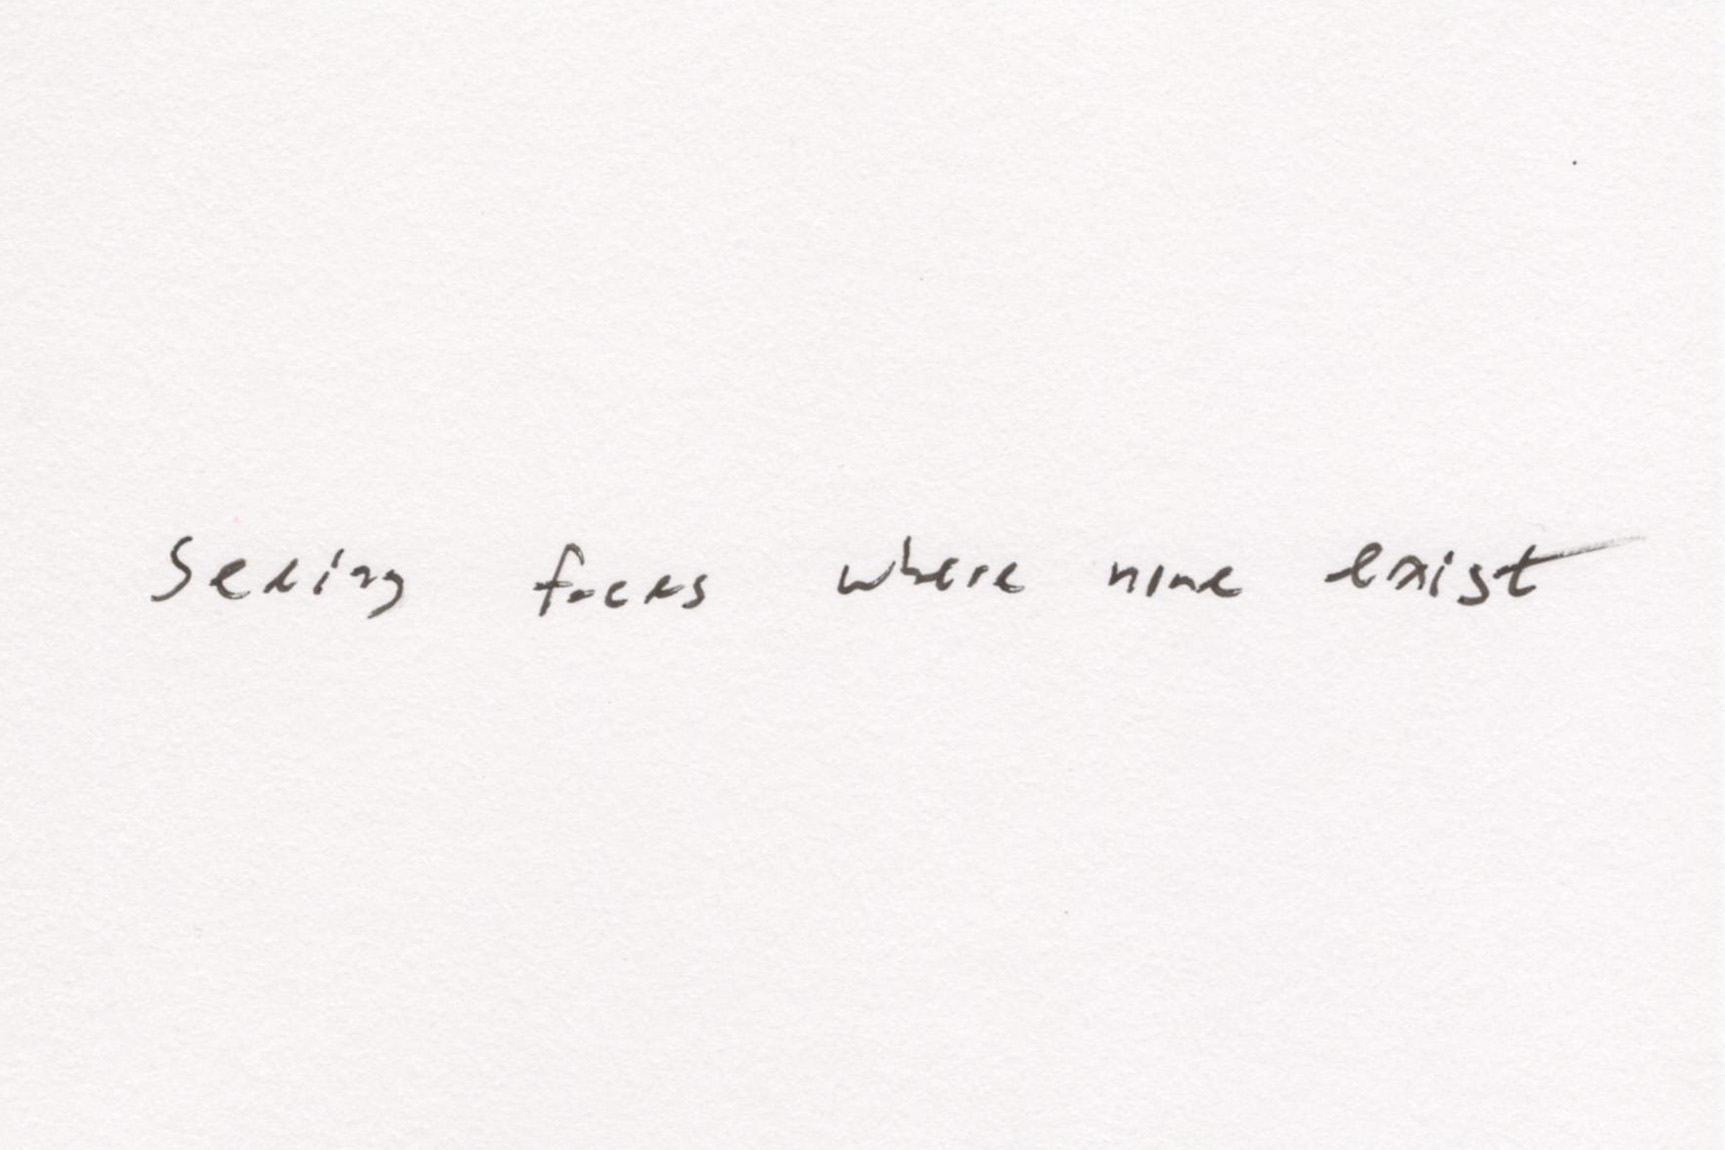 Seeing faces where none exist